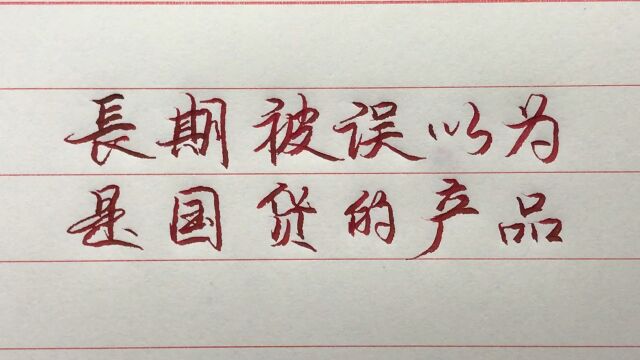 長期被误以为
是国货的产品